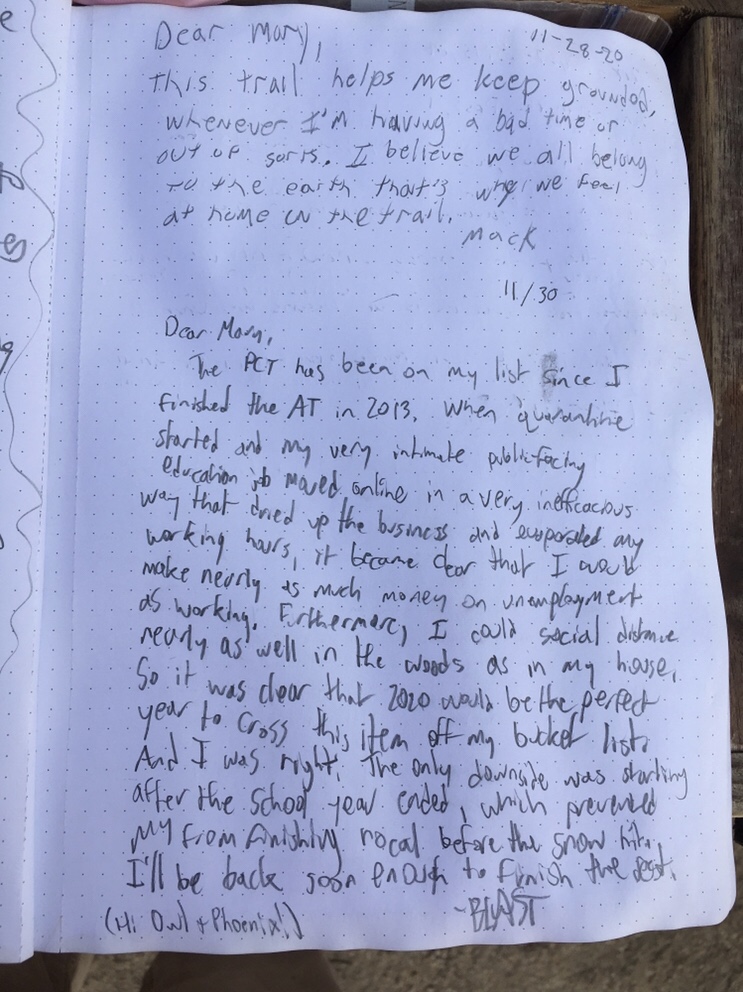 11-28-20
Dear Mary,
This trail helps me keep grounded,
whenever I'm having a bad time or
out of sorts. I believe we all belong
to the earth that's why we feel
at home on the trail.
Mack
11/30
Dear Mary,
The PCT has been on my list since I
finished the AT in 2013. When quarantine
started and my very intimate public-facing
education job moved online in a very inefficacious
way that dried up the business and evaporated my
working hours, it became clear that I would
make nearly as much money on unemployment
as working. Furthermore, I could social distance
nearly as well in the woods as in my house.
So it was clear that 2020 would be the perfect
year to cross this item off my bucket list.
And I was right. The only downside was starting
after the school year ended, which prevented
my from finishing before the snow hit.
I'll be back soon enough to finish the rest.
-BLAST
(Hi Owl + Phoenix!)